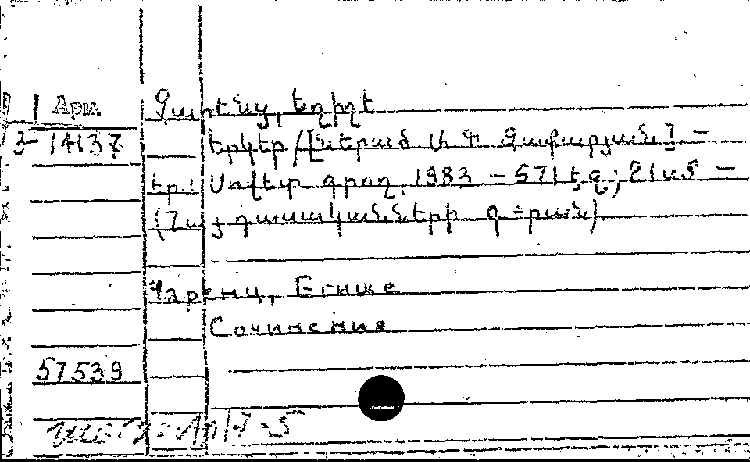 Арм. Չարենց, Եղիշե
3-14137 Երկեր /[Ներած. և Պ. Զաքարյան.] –
Եր.: Սովետ. գրող, 1983 – 571 էջ; 21 սմ –
(Հայ դասականների գ-րան)
Чаренц, Егише
Сочинения
57539